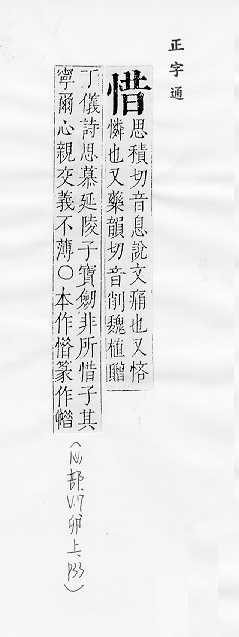 正字通
惜
思積切音息說文痛也又悋
憐也又藥韻切音削魏植贈
丁儀詩思慕延陵子寶劒非所惜子其
寧爾心親交義不薄○本作篆作
(心部V.7卯上P33)